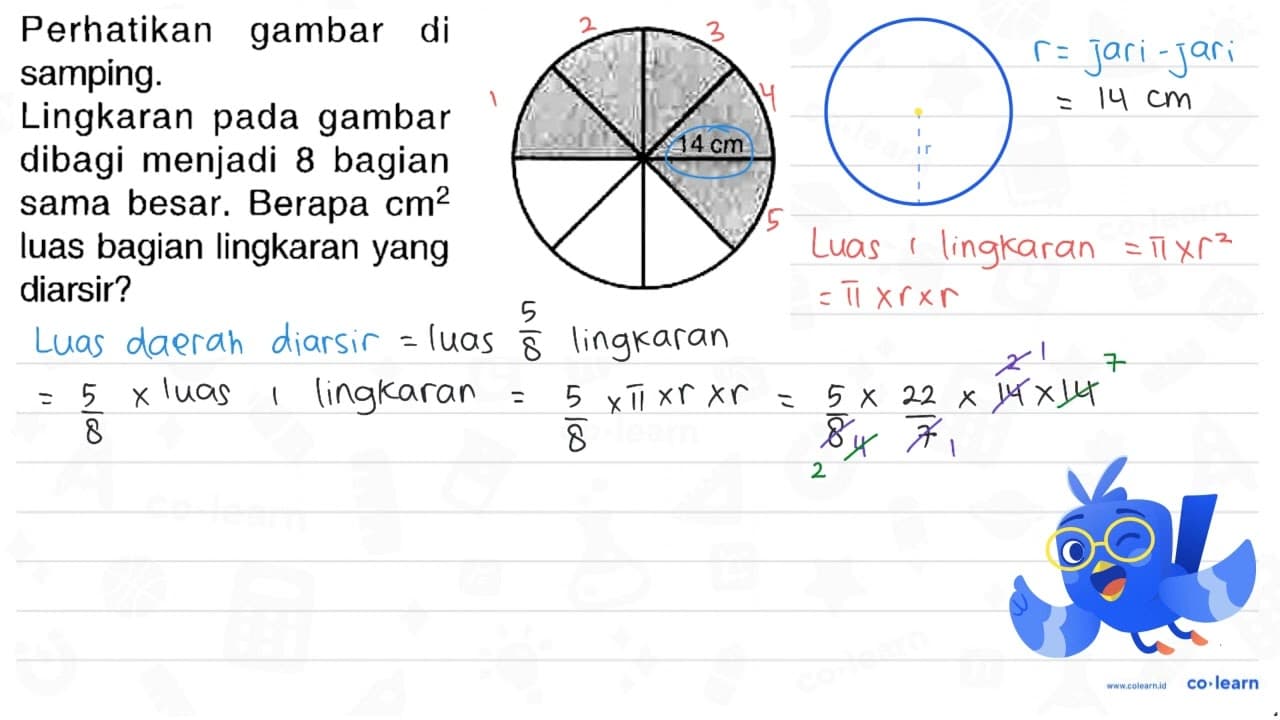 Perhatikan gambar di
samping.
Lingkaran pada gambar
dibagi menjadi 8 bagian
sama besar. Berapa cm²
luas bagian lingkaran yang
diarsir?
1
2
3
4
14 cm
5
r
r = jari-jari
= 14 cm
Luas 1 lingkaran = π x r²
= π x r x r
Luas daerah diarsir = luas 5/8 lingkaran
= 5/8 x luas 1 lingkaran = 5/8 x π x r x r = 5/8 x 22/7 x 14 x 14
2 1 7
4 1
2
www.colearn.id co·learn